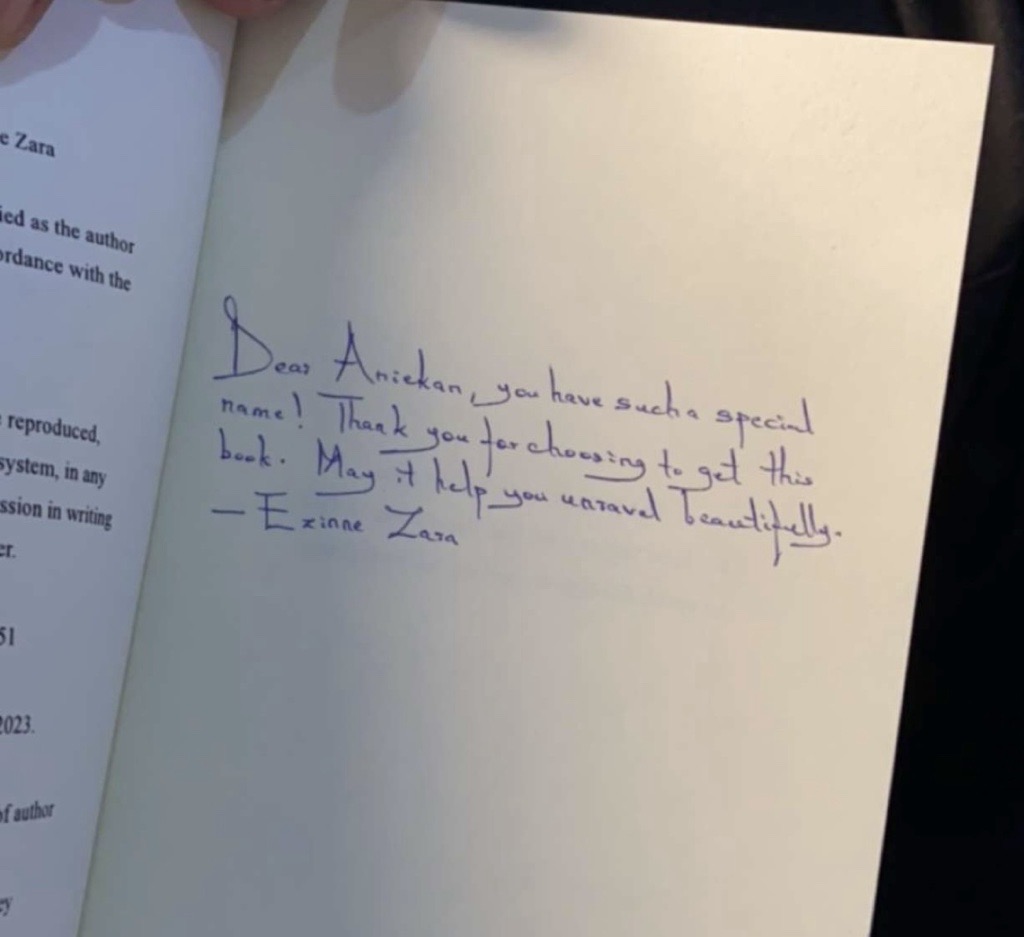 e Zara
ied as the author
ordance with the
reproduced,
system, in any
ssion in writing
er.
51
2023.
of author
ey
Dear Aniekan, you have such a special
name! Thank you for choosing to get this
book. May it help you unravel beautifully.
— Ezinne Zara